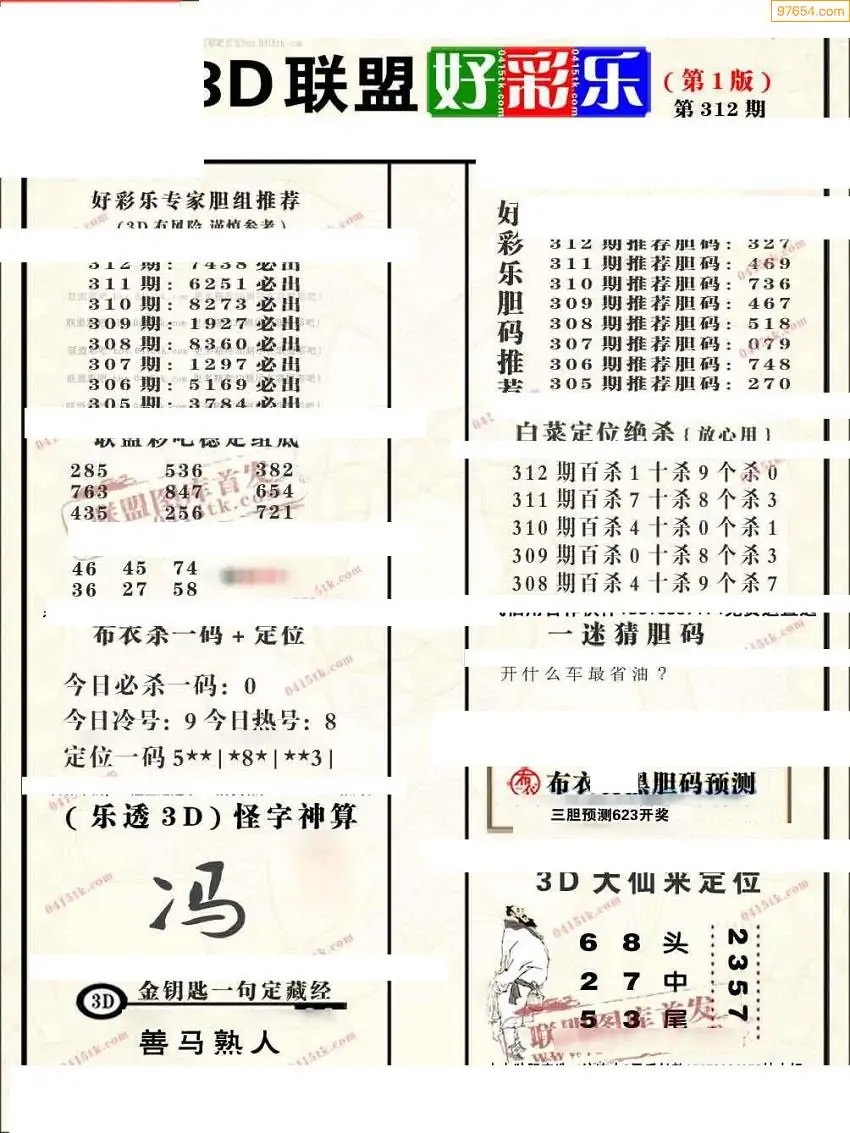 97654.com
3D联盟好彩乐
(第1版)
第312期
好彩乐专家胆组推荐
(3D有风险 谨慎参考)
312期: 7438必出
311期: 6251必出
310期: 8273必出
309期: 1927必出
308期: 8360必出
307期: 1297必出
306期: 5169必出
305期: 3784必出
联盟彩吧稳定组底
285 536 382
763 847 654
435 256 721
46 45 74
36 27 58
布衣杀一码+定位
今日必杀一码: 0
今日冷号: 9 今日热号: 8
定位一码 5**|*8*|**3|
(乐透3D)怪字神算
冯
3D 金钥匙一句定藏经
善马熟人
好彩乐胆码推荐
312期推荐胆码: 327
311期推荐胆码: 469
310期推荐胆码: 736
309期推荐胆码: 467
308期推荐胆码: 518
307期推荐胆码: 079
306期推荐胆码: 748
305期推荐胆码: 270
白菜定位绝杀{放心用}
312期百杀1十杀9个杀0
311期百杀7十杀8个杀3
310期百杀4十杀0个杀1
309期百杀0十杀8个杀3
308期百杀4十杀9个杀7
一迷猜胆码
开什么车最省油?
布衣 胆码预测
三胆预测623开奖
3D大仙来定位
6 8 头
2 7 中
5 3 尾
2357
联盟图库首发
0415tk.com